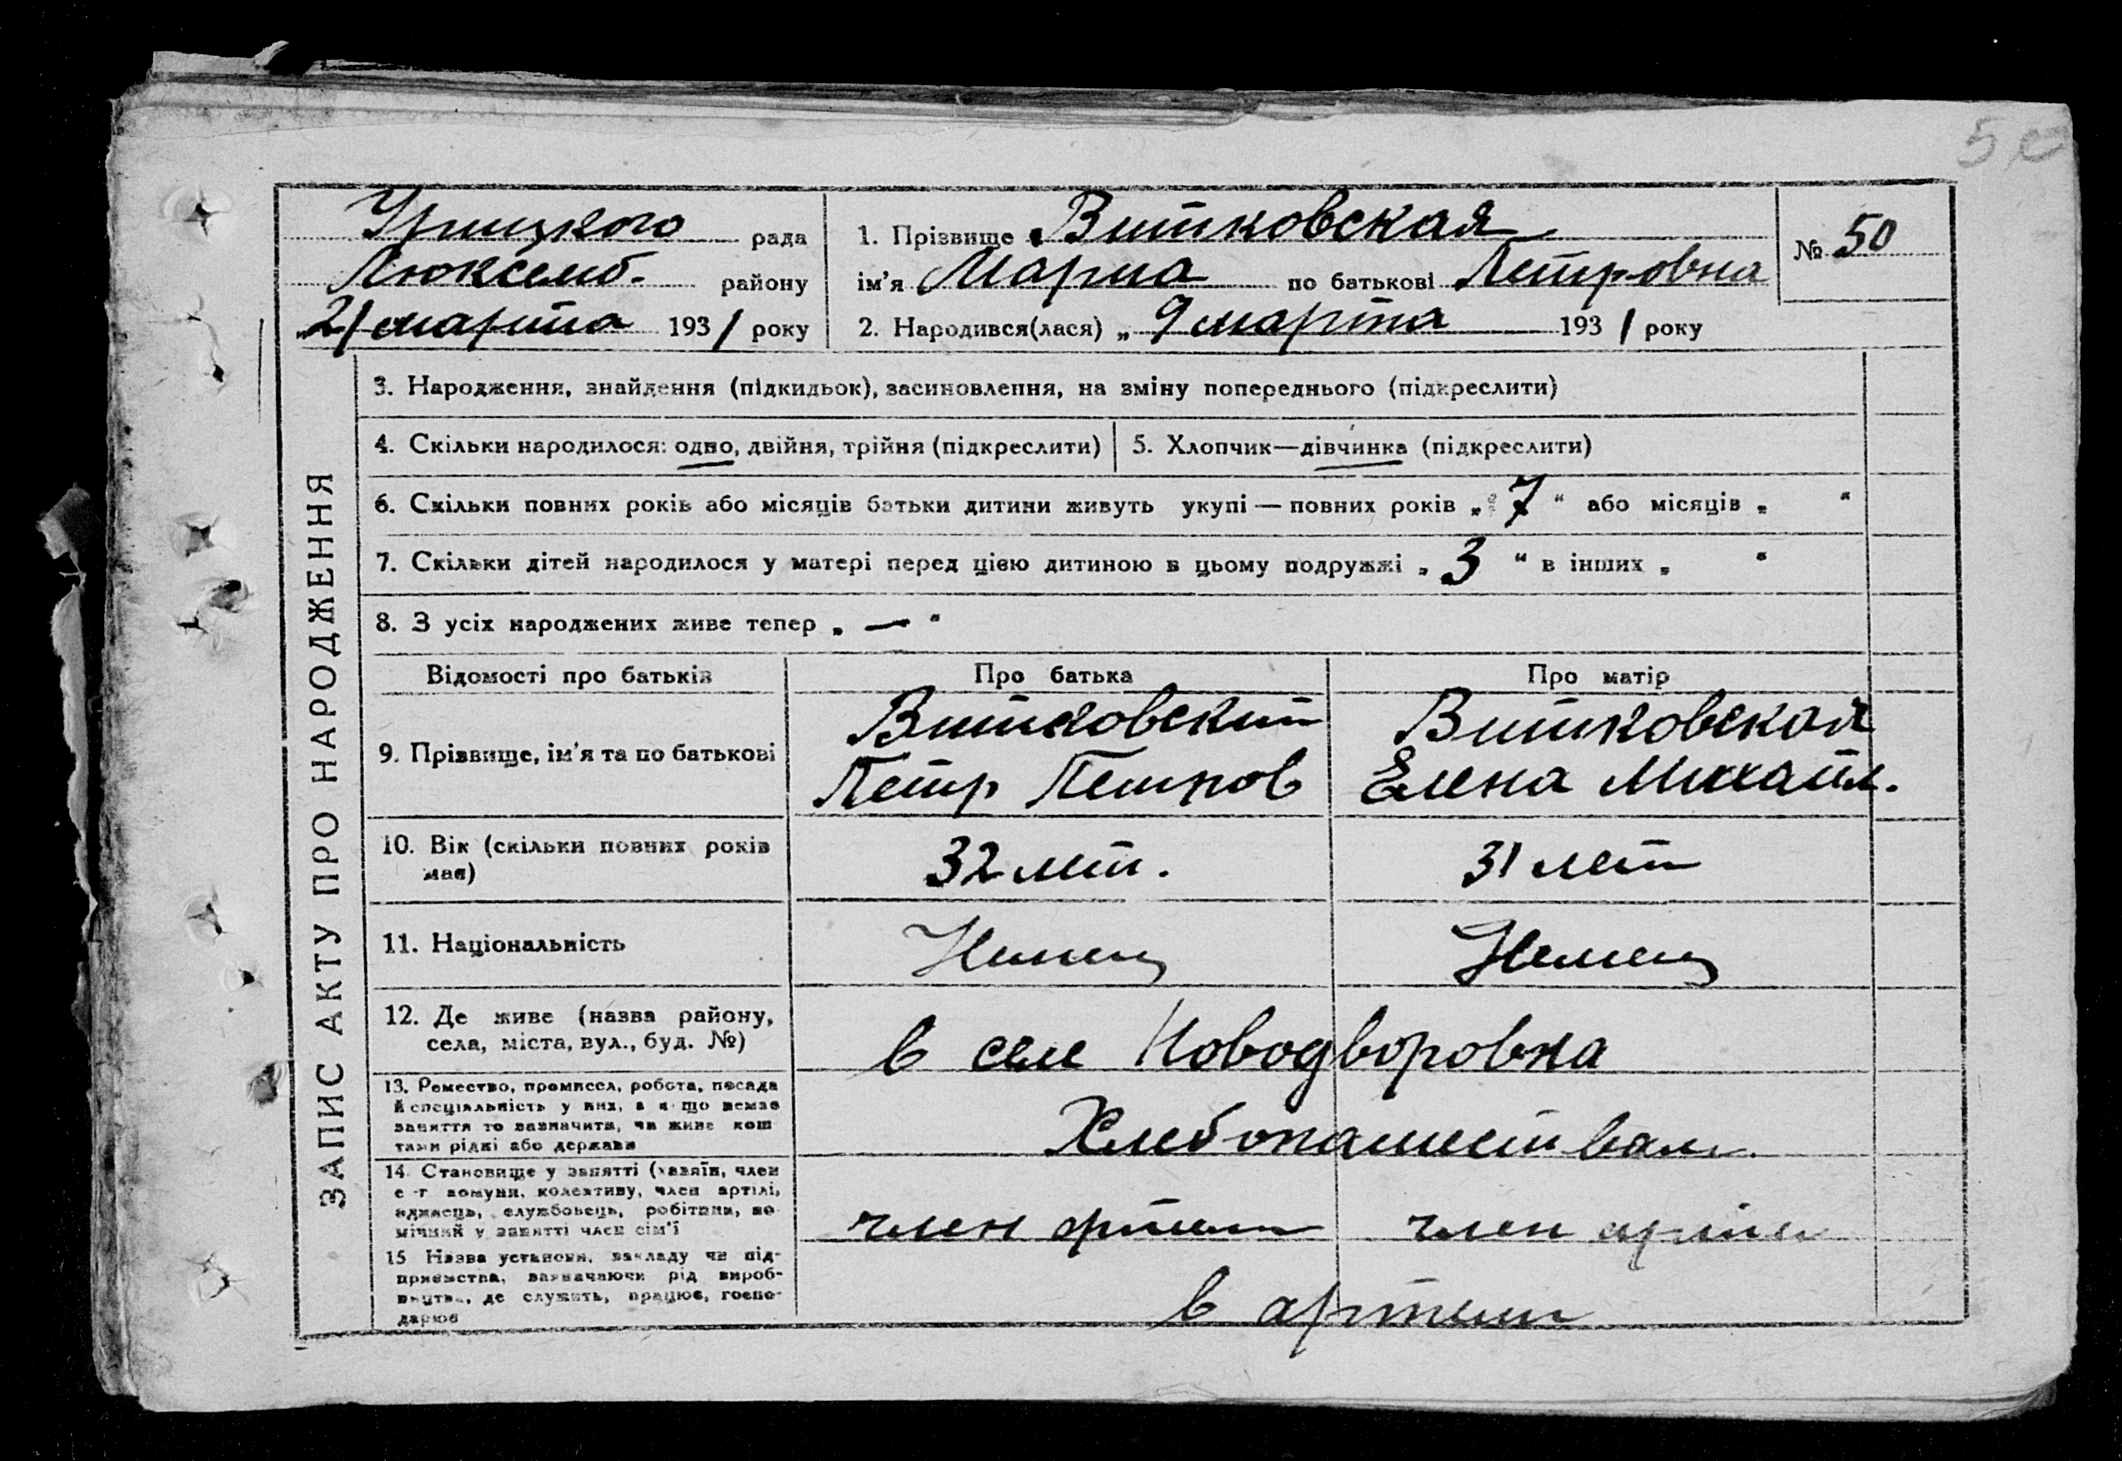 50
Урицкого рада
Люксемб. району
„21 марта 1931 року
1. Прізвище Витковская
ім'я Мария по батькові Петровна
2. Народився(лася) „ 9 марта 1931 року
№ 50
ЗАПИС АКТУ ПРО НАРОДЖЕННЯ
3. Народження, знайдення (підкидьок), засиновлення, на зміну попереднього (підкреслити)
4. Скільки народилося: одно, двійня, трійня (підкреслити)
5. Хлопчик—дівчинка (підкреслити)
6. Скільки повних років або місяців батьки дитини живуть укупі — повних років „ 7 “ або місяців „ “
7. Скільки дітей народилося у матері перед цією дитиною в цьому подружжі „ 3 “ в інших „ “
8. З усіх народжених живе тепер „ — “
Відомості про батьків Про батька Про матір
9. Прізвище, ім'я та по батькові
Витковский
Петр Петров
Витковская
Елена Михайл.
10. Вік (скільки повних років
має)
32 лет.
31 лет
11. Національність
Немец
Немец
12. Де живе (назва району,
села, міста, вул., буд. №)
в селе Новодворовка
13. Ремество, промисел, робота, посада
й спеціяльність у них, а якщо немає
заняття то зазначити, чи живе кош
тами рідні або держави
Хлебопашеством
14. Становище у занятті (хазяїн, член
с-г комуни, колективу, член артілі,
службовець, робітник, по
мічний у занятті член сім'ї
член артели
член артели
15 Назва установи, закладу чи під-
приємства, зазначаючи рід вироб-
ництва, де служить, працює, госпо-
дарює
в артели